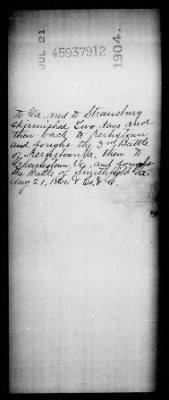 JUL. 21
45937912
1904.
to Va. and to Strausburg
skermished Two days and
then back to Kernstown
and fought the 3rd Battle
of Kernstown Va. then to
Charlestown Va. and fought
the Battle of Smithfield Va.
Aug 21, 1864